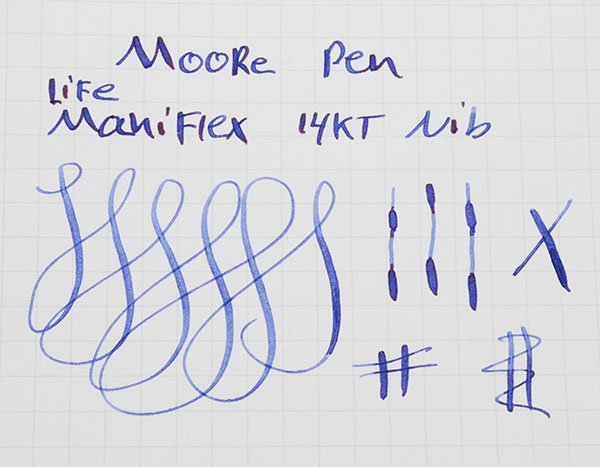 Moore Pen
Life
Maniflex 14KT Nib
X
#